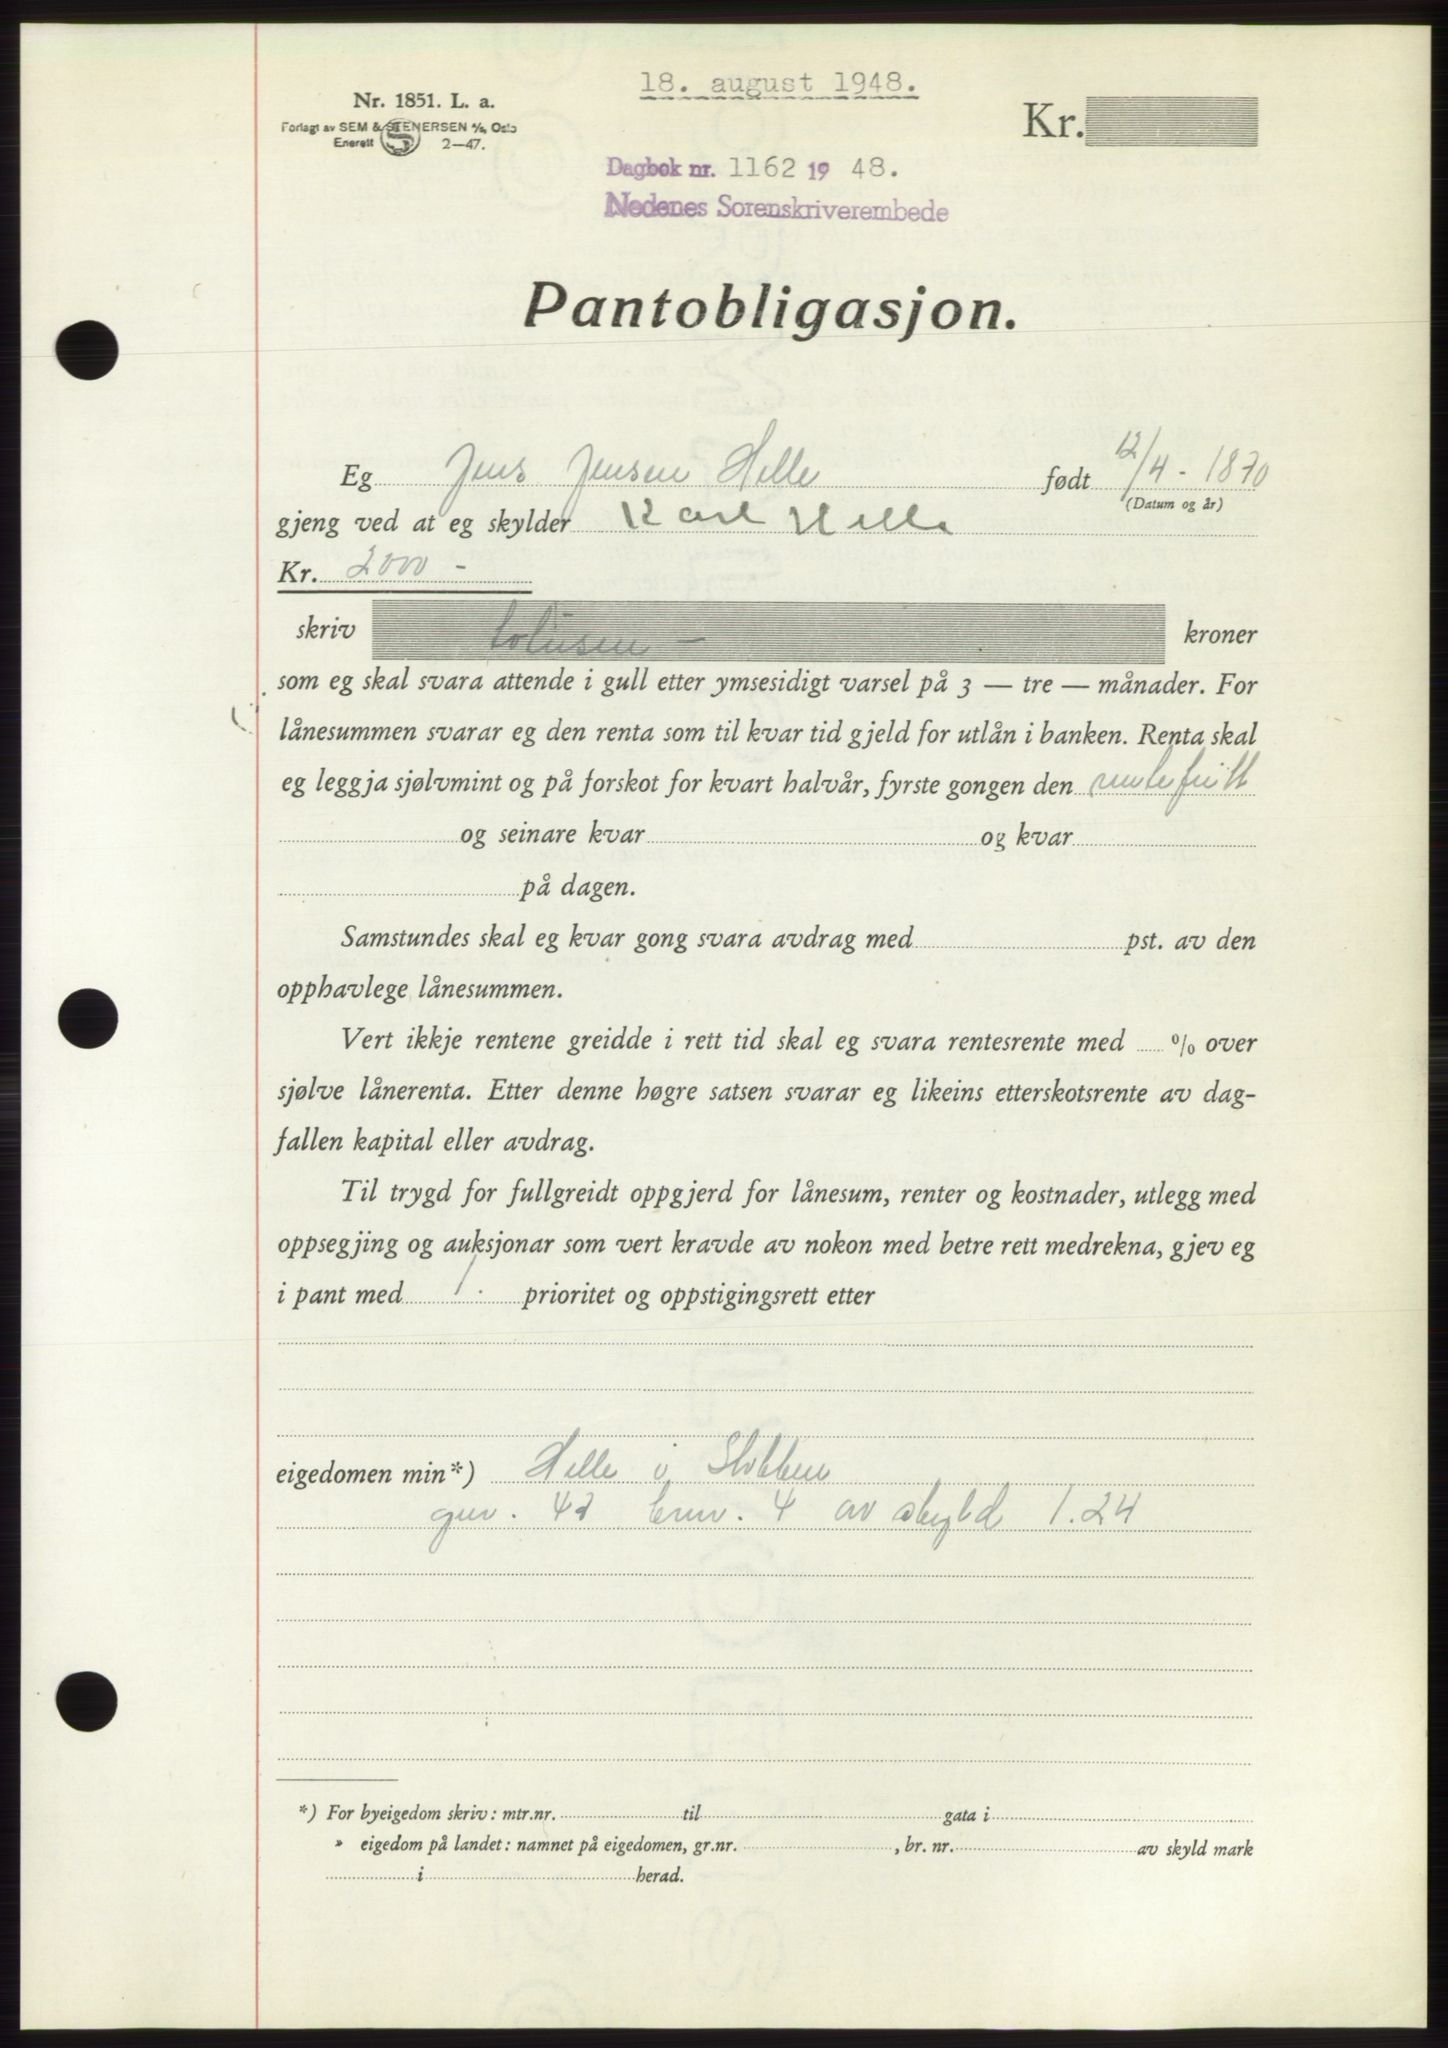 18. august 1948.
Nr. 1851. L. a.
Forlagt av SEM & STENERSEN A/S, Oslo
Enerett 2—47.
Kr.
Dagbok nr. 1162 19 48.
Nedenes Sorenskriverembede
Pantobligasjon.
Eg Jens Jensen Helle født 12/4 - 1870
(Datum og år)
gjeng ved at eg skylder Karl Helle
Kr. 2000 -
skriv totusen — kroner
som eg skal svara attende i gull etter ymsesidigt varsel på 3 — tre — månader. For
lånesummen svarar eg den renta som til kvar tid gjeld for utlån i banken. Renta skal
eg leggja sjølvmint og på forskot for kvart halvår, fyrste gongen den rentefritt
og seinare kvar og kvar
på dagen.
Samstundes skal eg kvar gong svara avdrag med pst. av den
opphavlege lånesummen.
Vert ikkje rentene greidde i rett tid skal eg svara rentesrente med % over
sjølve lånerenta. Etter denne høgre satsen svarar eg likeins etterskotsrente av dag-
fallen kapital eller avdrag.
Til trygd for fullgreidt oppgjerd for lånesum, renter og kostnader, utlegg med
oppsegjing og auksjonar som vert kravde av nokon med betre rett medrekna, gjev eg
i pant med 1. prioritet og oppstigingsrett etter
eigedomen min*) Helle i
gnr. 42 bnr. 4 av skyld 1.24
*) For byeigedom skriv: mtr.nr. til gata i
» eigedom på landet: namnet på eigedomen, gr.nr. , br. nr. av skyld mark
i herad.